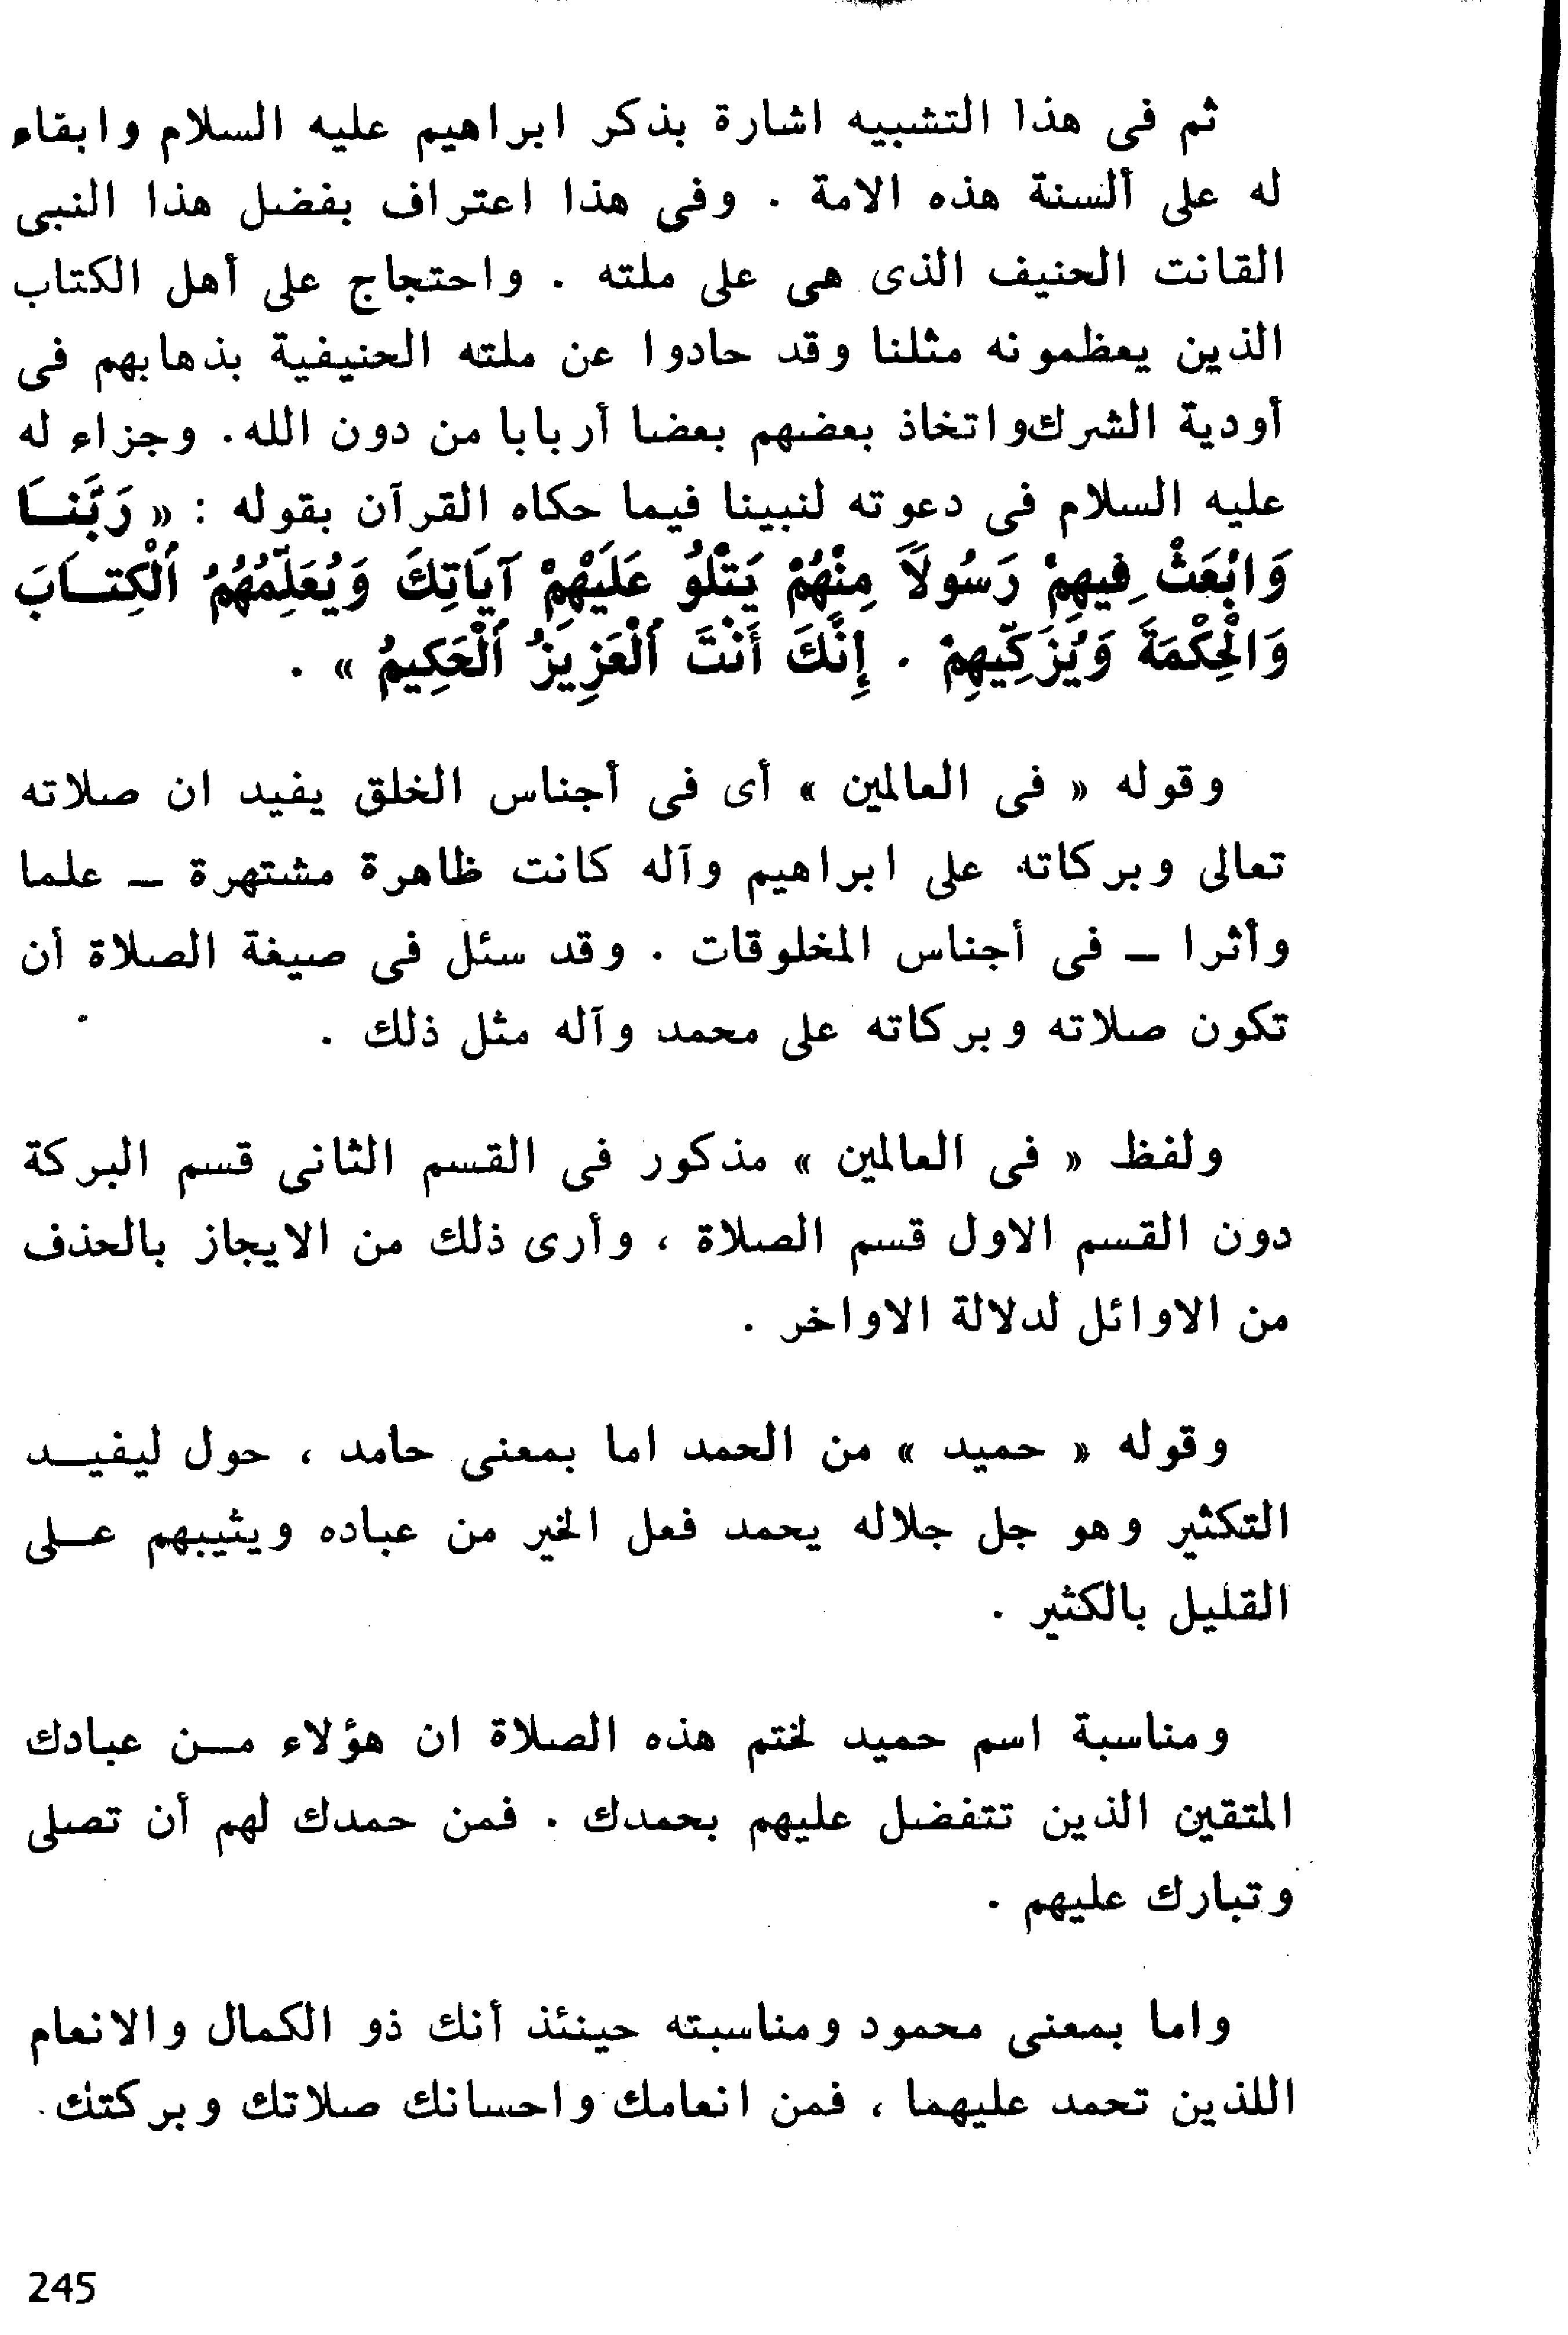 ثم فى هذا التشبيه اشارة بذكر ابراهيم عليه السلام وابقاء
له على ألسنة هذه الامة . وفى هذا اعتراف بفضل هذا النبى
القانت الحنيف الذى هى على ملته . واحتجاج على أهل الكتاب
الذين يعظمونه مثلنا وقد حادوا عن ملته الحنيفية بذهابهم فى
أودية الشرك واتخاذ بعضهم بعضا أربابا من دون الله . وجزاء له
عليه السلام فى دعوته لنبينا فيما حكاه القرآن بقوله : « رَبَّنَا
وَابْعَثْ فِيهِمْ رَسُولًا مِنْهُمْ يَتْلُو عَلَيْهِمْ آيَاتِكَ وَيُعَلِّمُهُمُ ٱلْكِتَابَ
وَالْحِكْمَةَ وَيُزَكِّيهِمْ . إِنَّكَ أَنْتَ ٱلْعَزِيزُ ٱلْحَكِيمُ » .
وقوله « فى العالمين » أى فى أجناس الخلق يفيد ان صلاته
تعالى وبركاته على ابراهيم وآله كانت ظاهرة مشتهرة – علما
وأثرا – فى أجناس المخلوقات . وقد سئل فى صيغة الصلاة أن
تكون صلاته وبركاته على محمد وآله مثل ذلك .
ولفظ « فى العالمين » مذكور فى القسم الثانى قسم البركة
دون القسم الاول قسم الصلاة ، وأرى ذلك من الايجاز بالحذف
من الاوائل لدلالة الاواخر .
وقوله « حميد » من الحمد اما بمعنى حامد ، حول ليفيد
التكثير وهو جل جلاله يحمد فعل الخير من عباده ويثيبهم على
القليل بالكثير .
ومناسبة اسم حميد لختم هذه الصلاة ان هؤلاء من عبادك
المتقين الذين تتفضل عليهم بحمدك . فمن حمدك لهم أن تصلى
وتبارك عليهم .
واما بمعنى محمود ومناسبته حينئذ أنك ذو الكمال والانعام
اللذين تحمد عليهما ، فمن انعامك واحسانك صلاتك وبركتك .
245